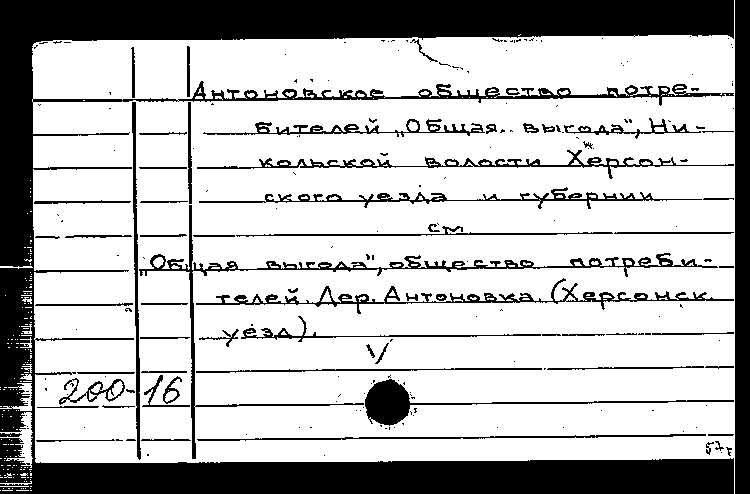 Антоновское общество потре-
бителей „Общая выгода", Ни-
кольской волости Херсон-
ского уезда и губернии
см
„Общая выгода", общество потреби-
телей. Дер. Антоновка (Херсонск.
уезд).
200-16
57г